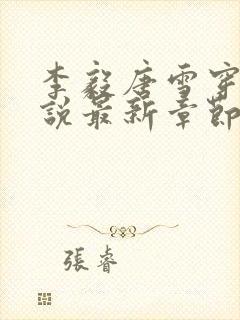 李毅唐雪穿
說最新章節
張睿